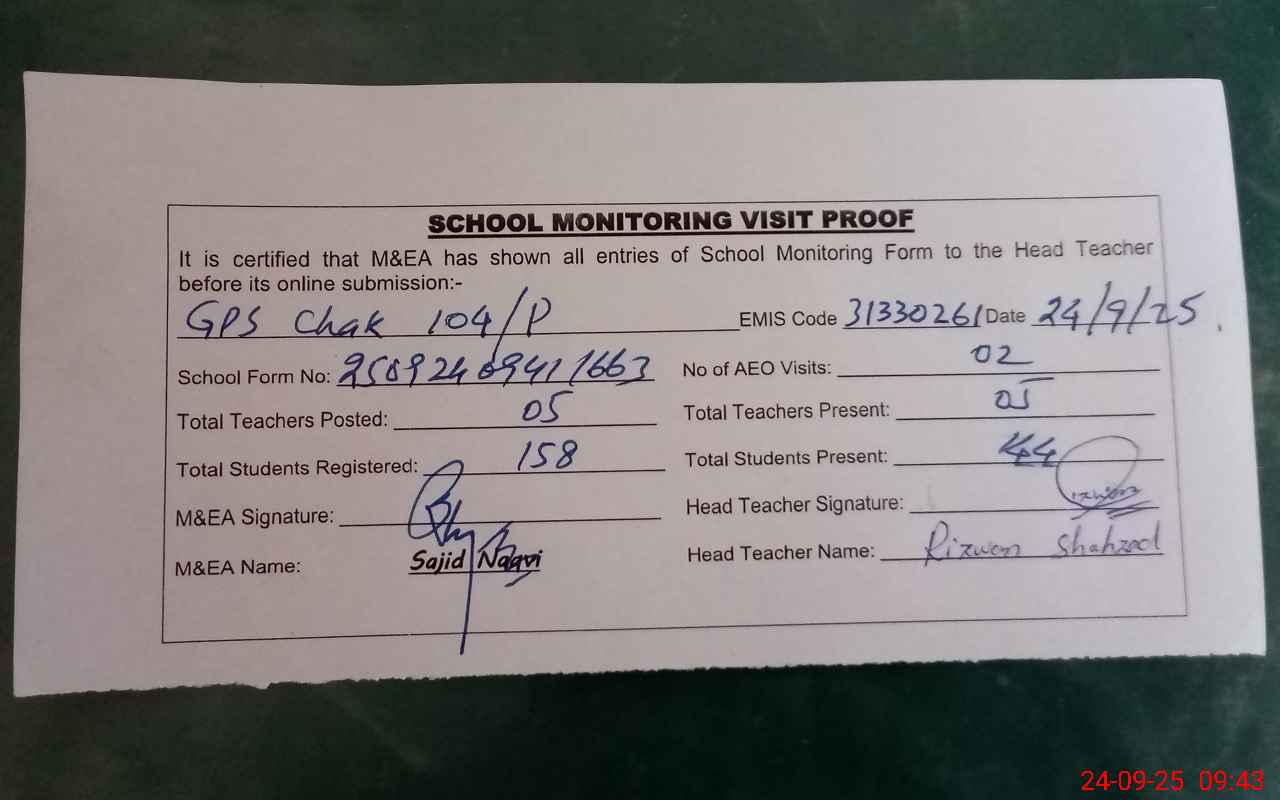 SCHOOL MONITORING VISIT PROOF
It is certified that M&EA has shown all entries of School Monitoring Form to the Head Teacher
before its online submission:-
GPS Chak 104/P EMIS Code 31330261 Date 24/9/25
School Form No: 250924094111663 No of AEO Visits: 02
Total Teachers Posted: 05 Total Teachers Present: 05
Total Students Registered: 158 Total Students Present: 44
M&EA Signature: Head Teacher Signature:
M&EA Name: Sajid Naqvi Head Teacher Name: Rizwan Shahzad
24-09-25 09:43